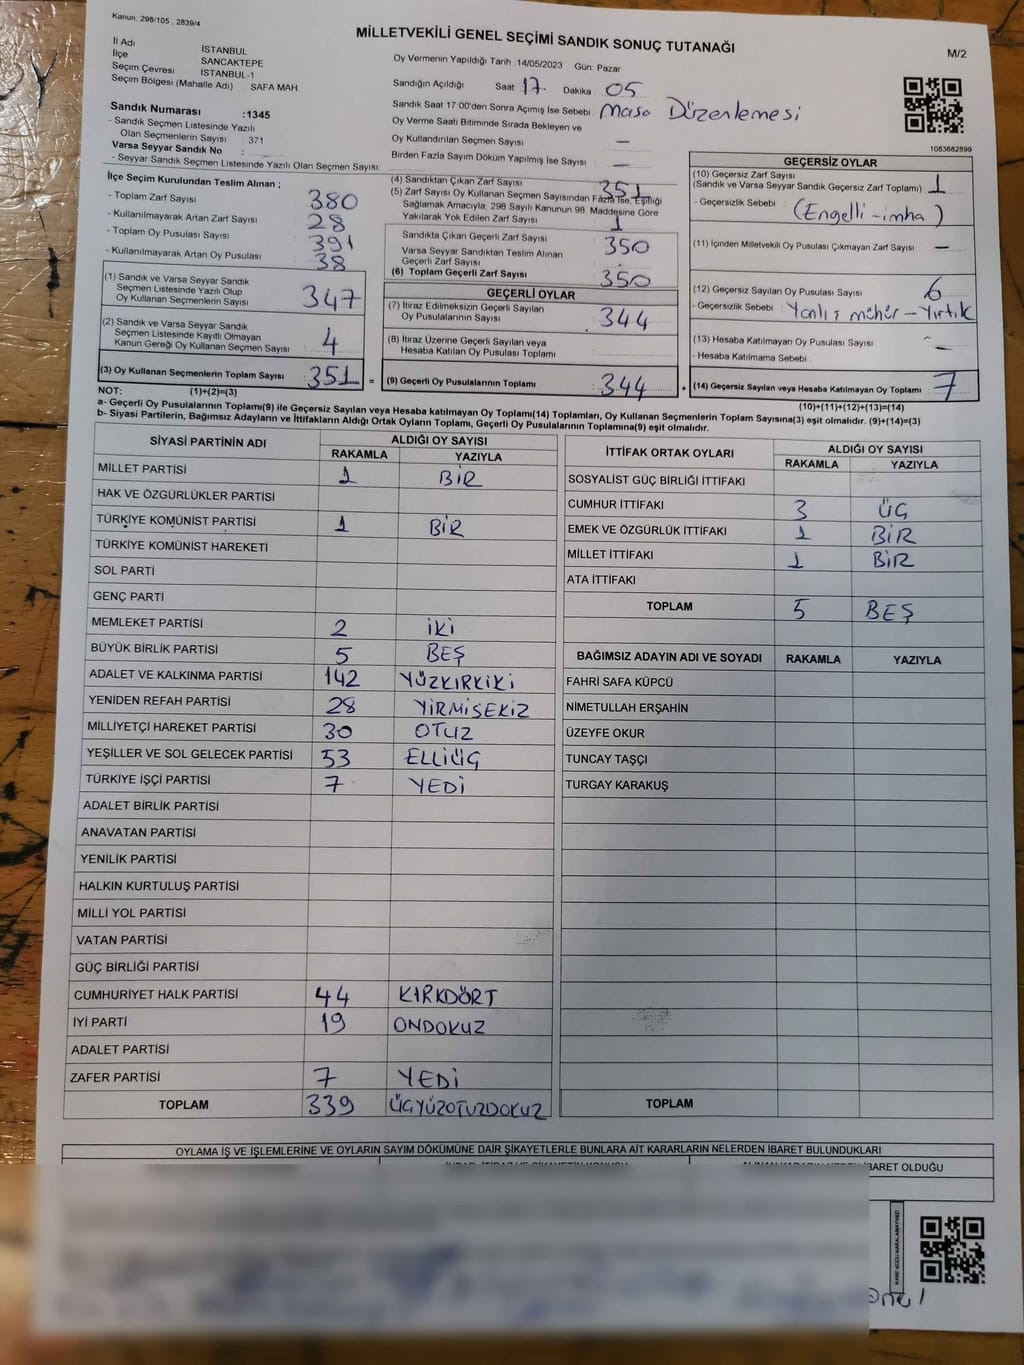 Kanun; 298/105 , 2839/4
MİLLETVEKİLİ GENEL SEÇİMİ SANDIK SONUÇ TUTANAĞI
M/2
İl Adı İSTANBUL
İlçe SANCAKTEPE
Seçim Çevresi İSTANBUL-1
Seçim Bölgesi (Mahalle Adı) SAFA MAH
Sandık Numarası :1345
- Sandık Seçmen Listesinde Yazılı
Olan Seçmenlerin Sayısı : 371
Varsa Seyyar Sandık No :
- Seyyar Sandık Seçmen Listesinde Yazılı Olan Seçmen Sayısı:
Oy Vermenin Yapıldığı Tarih :14/05/2023 Gün: Pazar
Sandığın Açıldığı Saat 17 Dakika 05
Sandık Saat 17:00'den Sonra Açımış İse Sebebi Masa Düzenlemesi
Oy Verme Saati Bitiminde Sırada Bekleyen ve
Oy Kullandırılan Seçmen Sayısı —
Birden Fazla Sayım Döküm Yapılmış İse Sayısı —
1083682899
İlçe Seçim Kurulundan Teslim Alınan ;
- Toplam Zarf Sayısı 380
- Kullanılmayarak Artan Zarf Sayısı 28
- Toplam Oy Pusulası Sayısı 391
- Kullanılmayarak Artan Oy Pusulası 38
(1) Sandık ve Varsa Seyyar Sandık
Seçmen Listesinde Yazılı Olup
Oy Kullanan Seçmenlerin Sayısı 347
(2) Sandık ve Varsa Seyyar Sandık
Seçmen Listesinde Kayıtlı Olmayan
Kanun Gereği Oy Kullanan Seçmen Sayısı 4
(3) Oy Kullanan Seçmenlerin Toplam Sayısı 351 =
(4) Sandıktan Çıkan Zarf Sayısı 351
(5) Zarf Sayısı Oy Kullanan Seçmen Sayısından Fazla İse, Eşitliği
Sağlamak Amacıyla, 298 Sayılı Kanunun 98. Maddesine Göre
Yakılarak Yok Edilen Zarf Sayısı 1
Sandıkta Çıkan Geçerli Zarf Sayısı 350
Varsa Seyyar Sandıktan Teslim Alınan
Geçerli Zarf Sayısı
(6) Toplam Geçerli Zarf Sayısı 350
GEÇERLİ OYLAR
(7) İtiraz Edilmeksizin Geçerli Sayılan
Oy Pusulalarının Sayısı 344
(8) İtiraz Üzerine Geçerli Sayılan veya
Hesaba Katılan Oy Pusulası Toplamı
(9) Geçerli Oy Pusulalarının Toplamı 344 +
GEÇERSİZ OYLAR
(10) Geçersiz Zarf Sayısı
(Sandık ve Varsa Seyyar Sandık Geçersiz Zarf Toplamı) 1
- Geçersizlik Sebebi (Engelli - imha)
(11) İçinden Milletvekili Oy Pusulası Çıkmayan Zarf Sayısı —
(12) Geçersiz Sayılan Oy Pusulası Sayısı 6
- Geçersizlik Sebebi : Yanlış mühür - Yırtık
(13) Hesaba Katılmayan Oy Pusulası Sayısı : —
- Hesaba Katılmama Sebebi
(14) Geçersiz Sayılan veya Hesaba Katılmayan Oy Toplamı 7
NOT: (1)+(2)=(3)
(10)+(11)+(12)+(13)=(14)
a- Geçerli Oy Pusulalarının Toplamı(9) ile Geçersiz Sayılan veya Hesaba katılmayan Oy Toplamı(14) Toplamları, Oy Kullanan Seçmenlerin Toplam Sayısına(3) eşit olmalıdır. (9)+(14)=(3)
b- Siyasi Partilerin, Bağımsız Adayların ve İttifakların Aldığı Ortak Oyların Toplamı, Geçerli Oy Pusulalarının Toplamına(9) eşit olmalıdır.
SİYASİ PARTİNİN ADI ALDIĞI OY SAYISI
RAKAMLA YAZIYLA
MİLLET PARTİSİ 1 BİR
HAK VE ÖZGÜRLÜKLER PARTİSİ
TÜRKİYE KOMÜNİST PARTİSİ 1 BİR
TÜRKİYE KOMÜNİST HAREKETİ
SOL PARTİ
GENÇ PARTİ
MEMLEKET PARTİSİ 2 İKİ
BÜYÜK BİRLİK PARTİSİ 5 BEŞ
ADALET VE KALKINMA PARTİSİ 142 YÜZKIRKİKİ
YENİDEN REFAH PARTİSİ 28 YİRMİSEKİZ
MİLLİYETÇİ HAREKET PARTİSİ 30 OTUZ
YEŞİLLER VE SOL GELECEK PARTİSİ 53 ELLİÜÇ
TÜRKİYE İŞÇİ PARTİSİ 7 YEDİ
ADALET BİRLİK PARTİSİ
ANAVATAN PARTİSİ
YENİLİK PARTİSİ
HALKIN KURTULUŞ PARTİSİ
MİLLİ YOL PARTİSİ
VATAN PARTİSİ
GÜÇ BİRLİĞİ PARTİSİ
CUMHURİYET HALK PARTİSİ 44 KIRKDÖRT
İYİ PARTİ 19 ONDOKUZ
ADALET PARTİSİ
ZAFER PARTİSİ 7 YEDİ
TOPLAM 339 ÜÇYÜZOTUZDOKUZ
İTTİFAK ORTAK OYLARI ALDIĞI OY SAYISI
RAKAMLA YAZIYLA
SOSYALİST GÜÇ BİRLİĞİ İTTİFAKI
CUMHUR İTTİFAKI 3 ÜÇ
EMEK VE ÖZGÜRLÜK İTTİFAKI 1 BİR
MİLLET İTTİFAKI 1 BİR
ATA İTTİFAKI
TOPLAM 5 BEŞ
BAĞIMSIZ ADAYIN ADI VE SOYADI RAKAMLA YAZIYLA
FAHRİ SAFA KÜPCÜ
NİMETULLAH ERŞAHİN
ÜZEYFE OKUR
TUNCAY TAŞÇI
TURGAY KARAKUŞ
TOPLAM
OYLAMA İŞ VE İŞLEMLERİNE VE OYLARIN SAYIM DÖKÜMÜNE DAİR ŞİKAYETLERLE BUNLARA AİT KARARLARIN NELERDEN İBARET BULUNDUKLARI
İBARET OLDUĞU